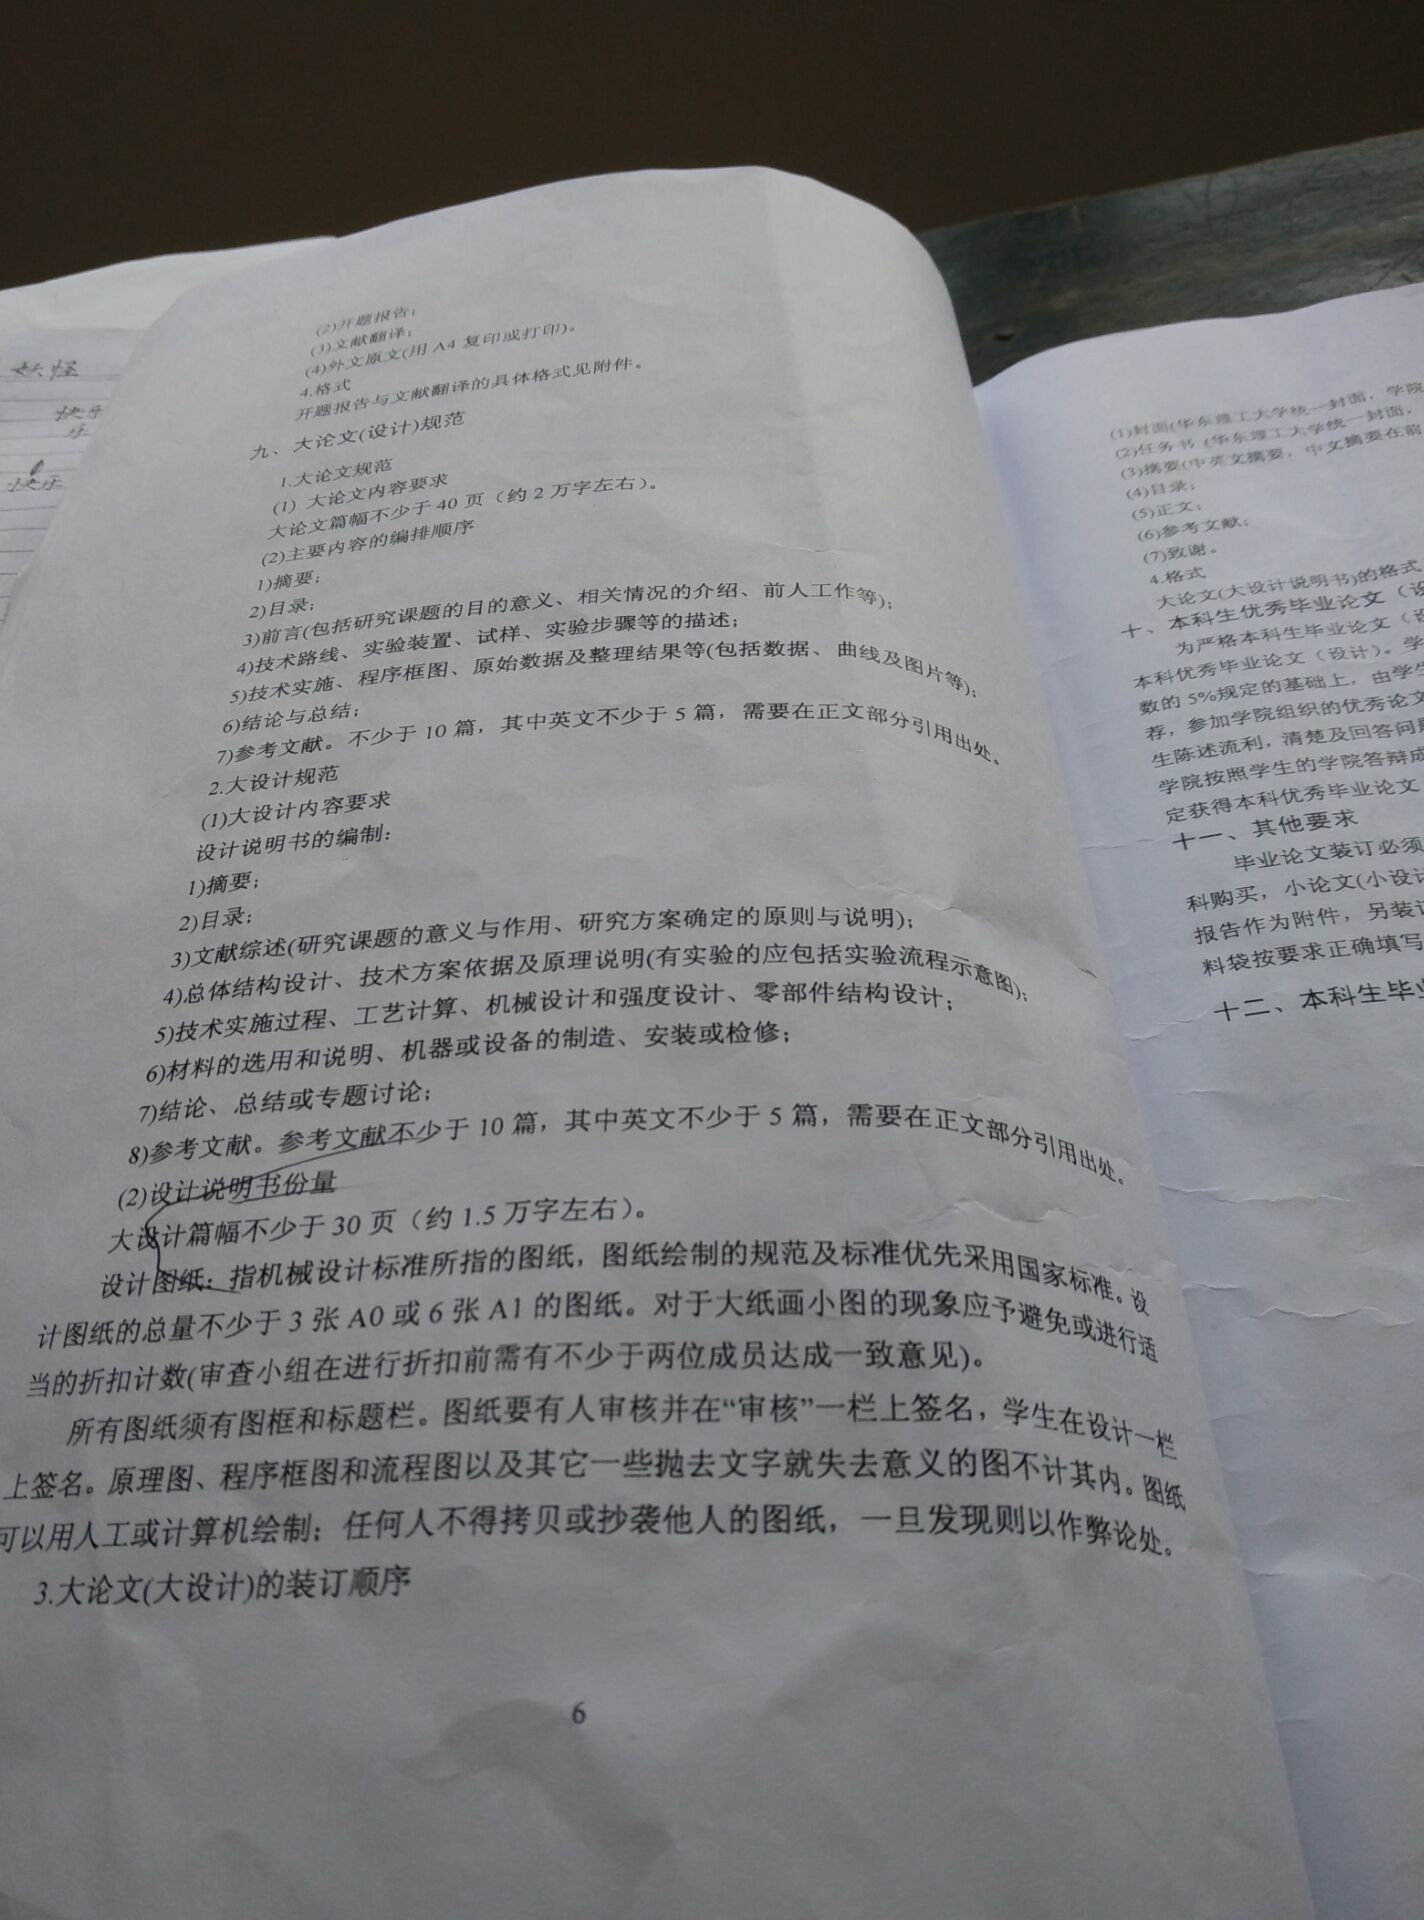 妖怪
快乐
乐
快乐
(2)开题报告；
(3)文献翻译；
(4)外文原文(用 A4 复印或打印)。
4.格式
开题报告与文献翻译的具体格式见附件。
九、大论文(设计)规范
1.大论文规范
(1) 大论文内容要求
大论文篇幅不少于 40 页（约 2 万字左右）。
(2)主要内容的编排顺序
1)摘要；
2)目录；
3)前言(包括研究课题的目的意义、相关情况的介绍、前人工作等)；
4)技术路线、实验装置、试样、实验步骤等的描述；
5)技术实施、程序框图、原始数据及整理结果等(包括数据、曲线及图片等)；
6)结论与总结；
7)参考文献。不少于 10 篇，其中英文不少于 5 篇，需要在正文部分引用出处。
2.大设计规范
(1)大设计内容要求
设计说明书的编制：
1)摘要；
2)目录；
3)文献综述(研究课题的意义与作用、研究方案确定的原则与说明)；
4)总体结构设计、技术方案依据及原理说明(有实验的应包括实验流程示意图)；
5)技术实施过程、工艺计算、机械设计和强度设计、零部件结构设计；
6)材料的选用和说明、机器或设备的制造、安装或检修；
7)结论、总结或专题讨论；
8)参考文献。参考文献不少于 10 篇，其中英文不少于 5 篇，需要在正文部分引用出处。
(2)设计说明书份量
大设计篇幅不少于 30 页（约 1.5 万字左右）。
设计图纸：指机械设计标准所指的图纸，图纸绘制的规范及标准优先采用国家标准。设
计图纸的总量不少于 3 张 A0 或 6 张 A1 的图纸。对于大纸画小图的现象应予避免或进行适
当的折扣计数(审查小组在进行折扣前需有不少于两位成员达成一致意见)。
所有图纸须有图框和标题栏。图纸要有人审核并在“审核”一栏上签名，学生在设计一栏
上签名。原理图、程序框图和流程图以及其它一些抛去文字就失去意义的图不计其内。图纸
可以用人工或计算机绘制；任何人不得拷贝或抄袭他人的图纸，一旦发现则以作弊论处。
3.大论文(大设计)的装订顺序
6
(1)封面(华东理工大学统一封面，学院
(2)任务书 (华东理工大学统一封面，
(3)摘要(中英文摘要，中文摘要在前
(4)目录；
(5)正文；
(6)参考文献；
(7)致谢。
4.格式
大论文(大设计说明书)的格式
十、本科生优秀毕业论文（设
为严格本科生毕业论文（设
本科优秀毕业论文（设计）。学
数的 5%规定的基础上，由学生
荐，参加学院组织的优秀论文
生陈述流利，清楚及回答问题
学院按照学生的学院答辩成
定获得本科优秀毕业论文（
十一、其他要求
毕业论文装订必须
科购买，小论文(小设计
报告作为附件，另装订
料袋按要求正确填写
十二、本科生毕业